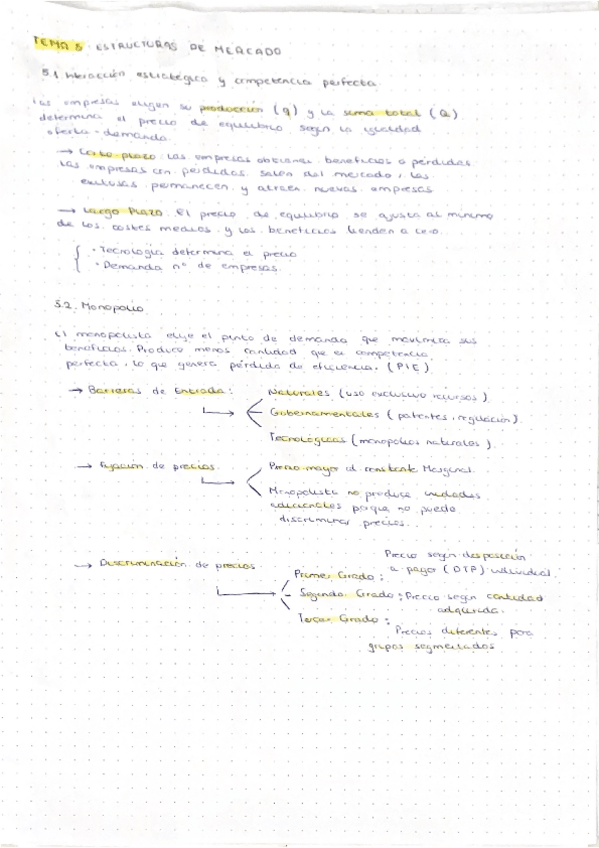 TEMA 5 ESTRUCTURAS DE MERCADO
5.1 Interacción estratégica y competencia perfecta.
Las empresas eligen su producción (q) y la suma total (Q)
determina el precio de equilibrio según la igualdad
oferta - demanda.
→ Corto plazo: Las empresas obtienen beneficios o pérdidas
Las empresas con perdidas salen del mercado, las
exitosas permanecen y atraen nuevas empresas
→ Largo Plazo: El precio de equilibrio se ajusta al mínimo
de los costes medios y los beneficios tienden a cero.
• Tecnología determina el precio
• Demanda nº de empresas.
5.2. Monopolio
El monopolista elige el punto de demanda que maximiza sus
beneficios. Produce menos cantidad que en competencia
perfecta, lo que genera pérdida de eficiencia. (PIE)
→ Barreras de Entrada:
Naturales (uso exclusivo recursos).
Gubernamentales (patentes, regulación).
Tecnológicas (monopolios naturales).
→ Fijación de precios.
Precio mayor al Marginal.
Monopolista no produce unidades
adicionales porque no puede
discriminar precios.
→ Discriminación de precios
Primer Grado:
Precio según disposición
a pagar (DTP) individual.
Segundo Grado: Precio según cantidad
adquirida.
Tercer Grado:
Precios diferentes para
grupos segmentados